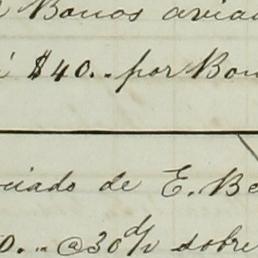 Bonos avia
$40.. por Bon
ciado de E. Be
0... @ 30 % sobre